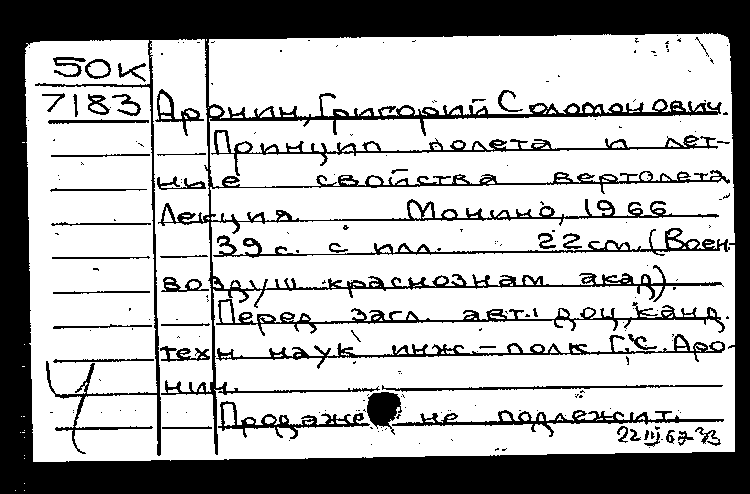 50К
7183 Аронин, Григорий Соломонович.
Принцип полета и лет-
ные свойства вертолета
Лекция. Монино, 1966
39 с. с илл. 22 см. (Воен-
воздуш краснознам акад).
Перед загл. авт.: доц, канд.
техн. наук инж.-полк Г.С. Аро-
нин.
Продаже не подлежит.
22 III 67